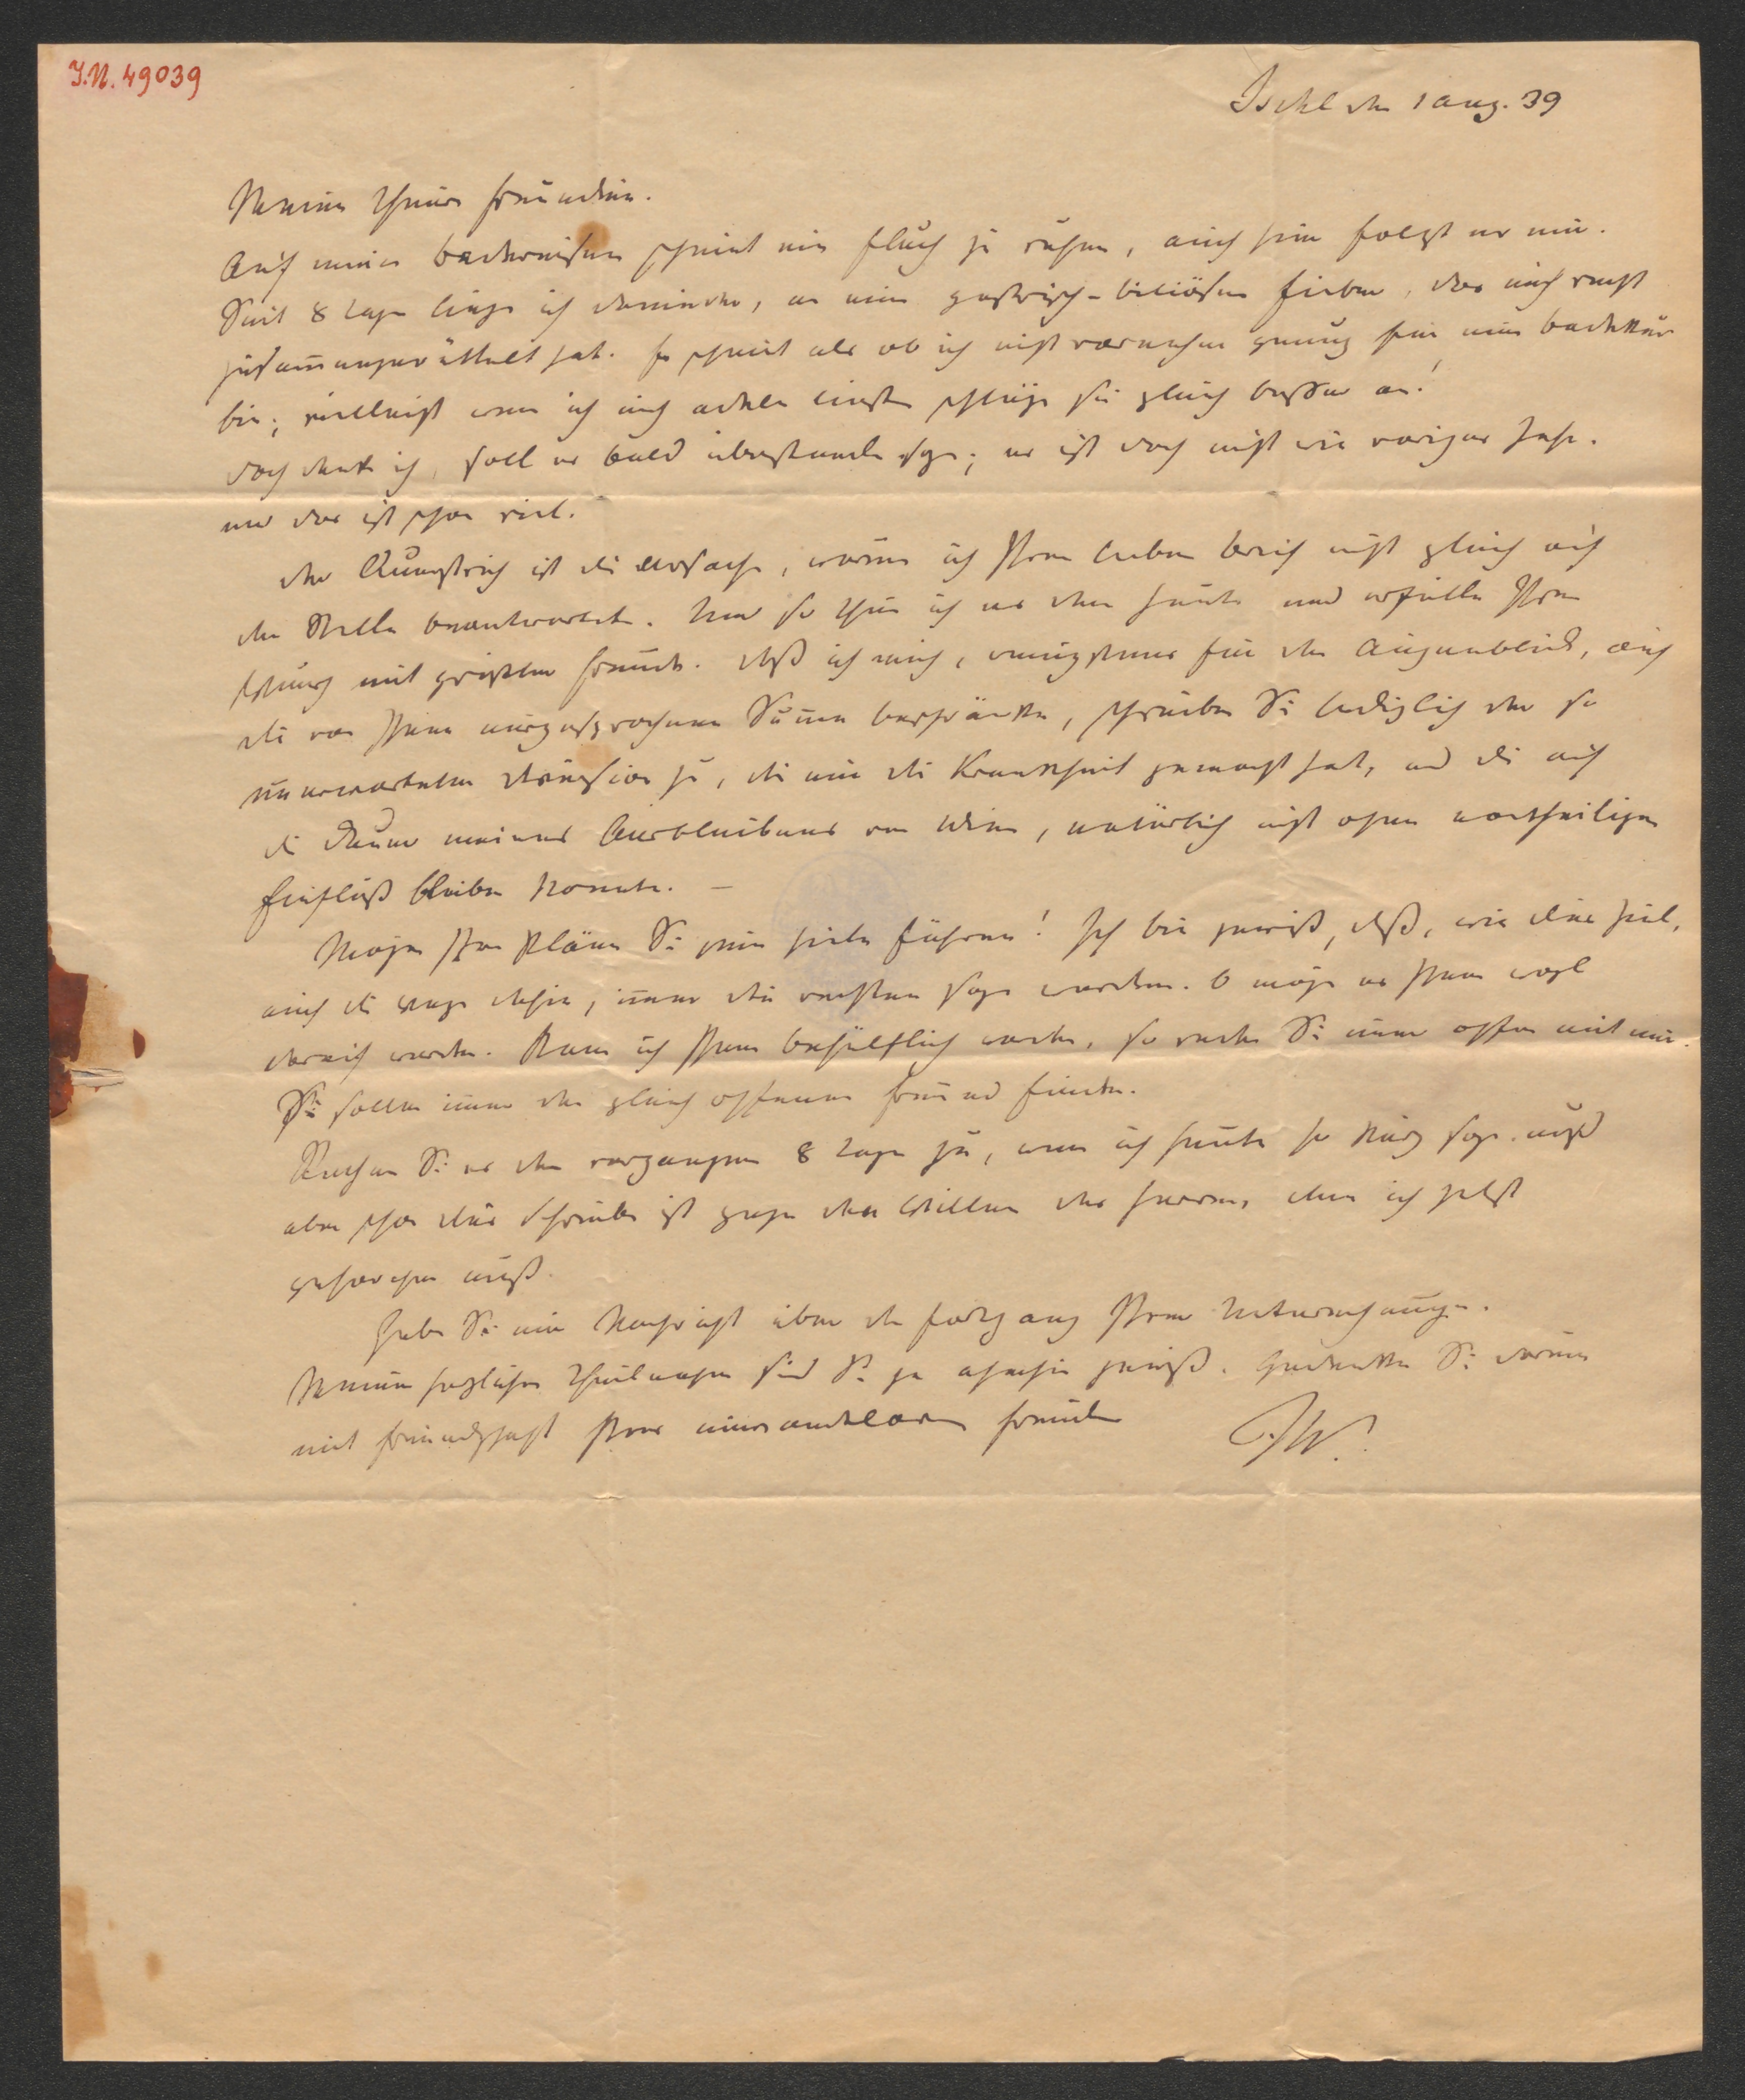 I.N. 49039
Ischl den 1 Aug. 39
Meine theure Freundin.
Auf meinen Badereisen scheint ein Fluch zu ruhen, auch hier folgt er mir.
Seit 8 Tagen liege ich darnieder, an einem gastrisch-biliösen Fieber, das mich recht
zusam̅engerüttelt hat. Es scheint als ob ich nicht vornehm genug für eine Badekur
bin; vielleicht wenn ich mich adeln ließe schlüge sie gleich besser an!
doch denk ich, soll es bald überstanden seyn; es ist doch nicht wie voriges Jahr.
und das ist schon viel.
der Querstrich ist die Ursache, warum ich Ihren lieben Brief nicht gleich auf
der Stelle beantwortete. Nun so thue ich es denn heute und erfülle Ihren
Wunsch mit größter Freude. daß ich mich, wenigstens für den Augenblick, auf
die von Ihnen ausgesprochene Sum̅e beschränke, schreiben Sie lediglich der so
unerwarteten Diversion zu, die mir die Krankheit gemacht hat, und die auf
die Dauer meines Ausbleibens von Wien, natürlich nicht ohne nachtheiligen
Einfluß bleiben konnte. —
Mögen Ihre Pläne Sie zum Ziele führen! Ich bin gewiß, daß, wie das Ziel,
auch die Wege dahin, im̅er die rechten seyn werden. O möge es Ihnen wohl
darauf werden. Kann ich Ihnen behülflich werden, so reden Sie im̅er offen mit mir.
Sie sollen im̅er den gleich offenen Freund finden.
Rechnen Sie es den vergangenen 8 Tagen zu, wenn ich heute so kurz seyn muß
aber schon das Schreiben ist gegen den Willen des Herren, dem ich jetzt
gehorchen muß.
Geben Sie mir Nachricht über den Fortgang Ihrer Unternehmungen.
Meiner herzlichen Theilnahme sind Sie ja ohnehin gewiß. Gedenken Sie darum
mit Freundschaft Ihres unwandelbaren Freundes
JW.